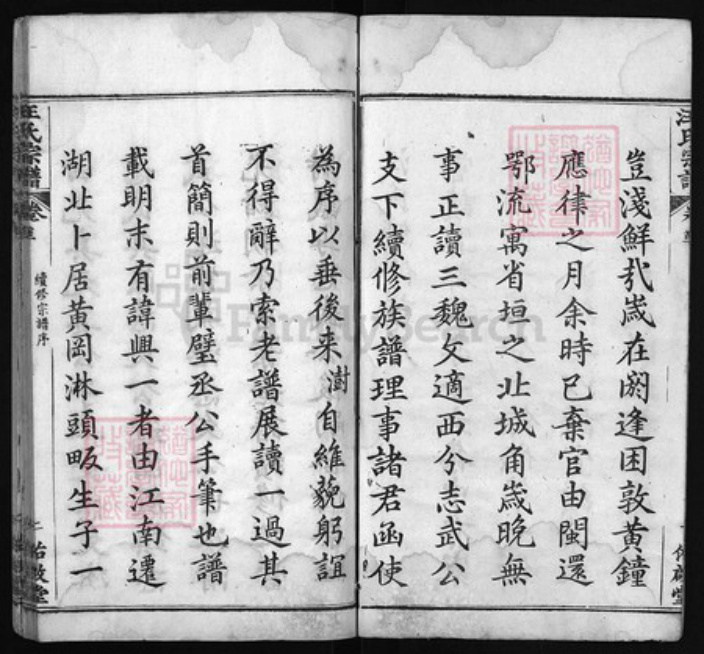 豈淺鮮㢤歲在閼逢困敦黃鐘
應律之月余時已棄官由閩還
鄂流寓省垣之北城角歲晚無
事正讀三魏文適西分志武公
支下續修族譜理事諸君函使
為序以垂後来澍自維藐躬誼
不得辭乃索老譜展讀一過其
首簡則前輩璧丞公手筆也譜
載明末有諱興一者由江南遷
湖北卜居黃岡淋頭畈生子一
汪氏宗譜
續修宗譜序
FamilySearch